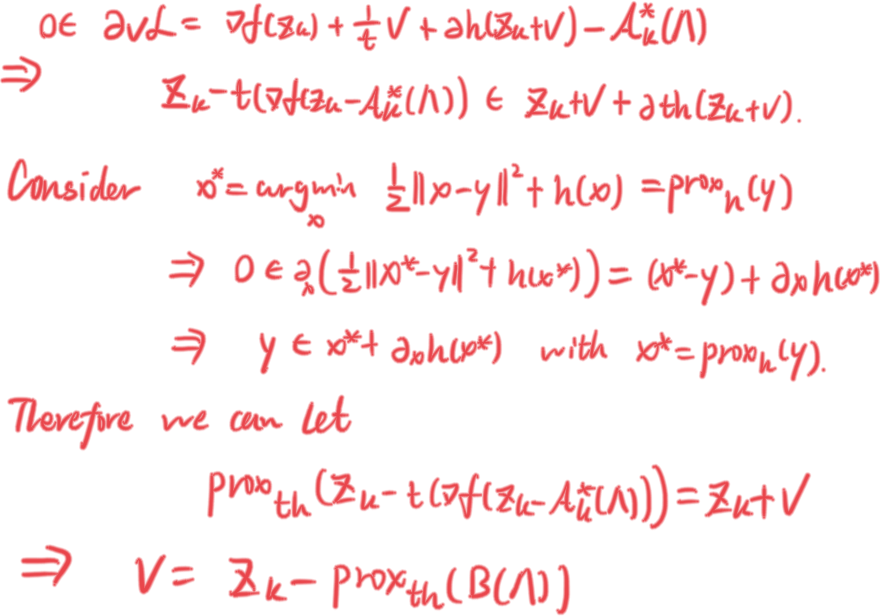 0∈ ∂_V ℒ = ∇f(Z_k) + 1/t V + ∂h(Z_k+V) − A_k^*(Λ)
⇒ Z_k − t(∇f(Z_k − A_k^*(Λ)) ∈ Z_k+V + ∂th(Z_k+V).
Consider x^* = argmin_x 1/2 ||x−y||^2 + h(x) = prox_h(y)
⇒ 0 ∈ ∂_x(1/2 ||x^*−y||^2 + h(x^*)) = (x^*−y) + ∂_x h(x^*)
⇒ y ∈ x^* + ∂_x h(x^*) with x^* = prox_h(y).
Therefore we can let
prox_th(Z_k − t(∇f(Z_k − A_k^*(Λ))) = Z_k+V
⇒ V = Z_k − prox_th(B(Λ))